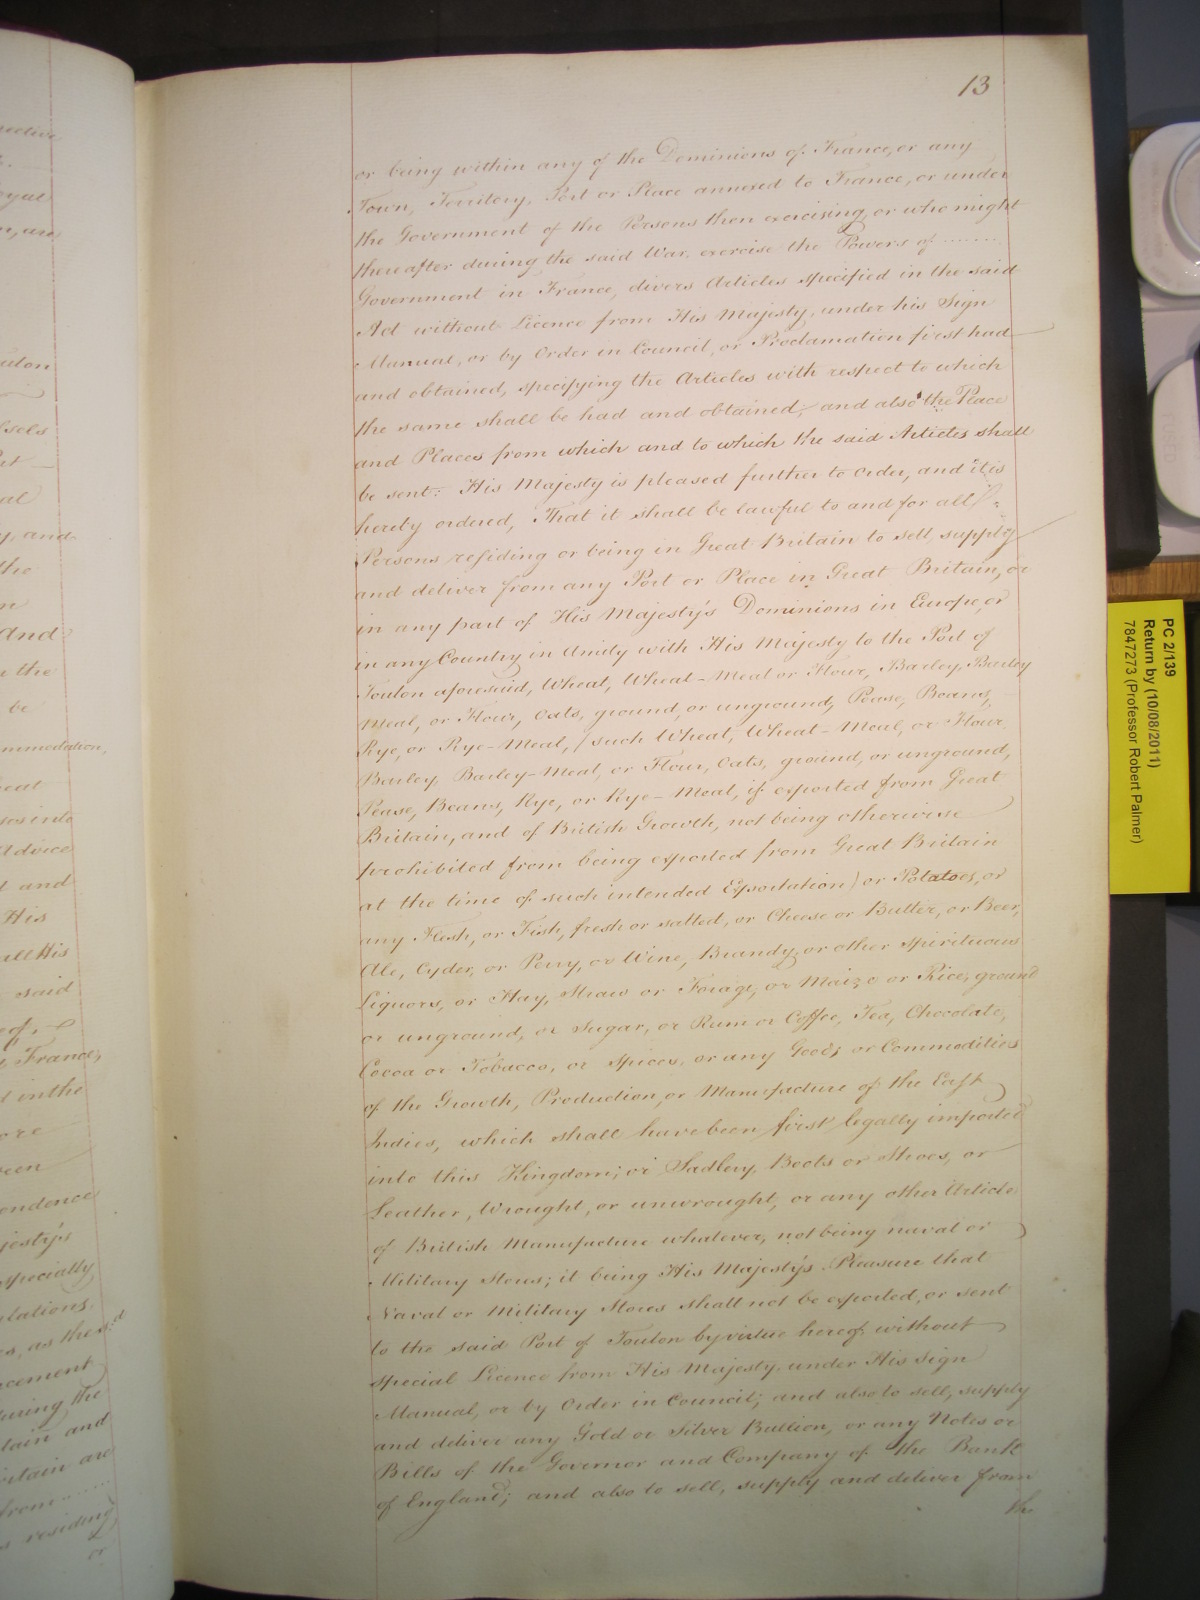 13
or being within any of the Dominions of France, or any
Town, Territory, Port or Place annexed to France, or under
the Government of the Persons then exercising, or who might
thereafter during the said War, exercise the Powers of .......
Government in France, divers Articles specified in the said
Act without Licence from His Majesty, under his Sign
Manual, or by Order in Council, or Proclamation first had
and obtained, specifying the Articles with respect to which
the same shall be had and obtained; and also the Place
and Places from which and to which the said Articles shall
be sent: His Majesty is pleased further to order, and it is
hereby ordered, That it shall be lawful to and for all
Persons residing or being in Great Britain to sell, supply
and deliver from any Port or Place in Great Britain, or
in any part of His Majesty's Dominions in Europe, or
in any Country in Amity with His Majesty to the Port of
Toulon aforesaid, Wheat, Wheat-Meal or Flour, Barley, Barley
Meal, or Flour, Oats, ground, or unground, Pease, Beans,
Rye, or Rye-Meal, (such Wheat, Wheat-Meal, or Flour
Barley, Barley-Meal, or Flour, Oats, ground, or unground,
Pease, Beans, Rye, or Rye-Meal, if exported from Great
Britain, and of British Growth, not being otherwise
prohibited from being exported from Great Britain
at the time of such intended Exportation) or Potatoes, or
any Flesh, or Fish, fresh or salted, or Cheese or Butter, or Beer,
Ale, Cyder, or Perry, or Wine, Brandy, or other Spirituous
Liquors, or Hay, Straw or Forage, or Maize or Rice, ground
or unground, or Sugar, or Rum or Coffee, Tea, Chocolate,
Cocoa or Tobacco, or Spices, or any Goods or Commodities
of the Growth, Production, or Manufacture of the East
Indies, which shall have been first legally imported
into this Kingdom; or Sadlery, Boots or Shoes, or
Leather, Wrought, or unwrought, or any other Article
of British Manufacture whatever, not being naval or
Military Stores; it being His Majesty's Pleasure that
Naval or Military Stores shall not be exported, or sent
to the said Port of Toulon by virtue hereof, without
special Licence from His Majesty, under His Sign
Manual, or by Order in Council; and also to sell, supply
and deliver any Gold or Silver Bullion, or any Notes or
Bills of the Governor and Company of the Bank
of England; and also to sell, supply and deliver from
the
PC 2/139
Return by (10/08/2011)
7847273 (Professor Robert Palmer)